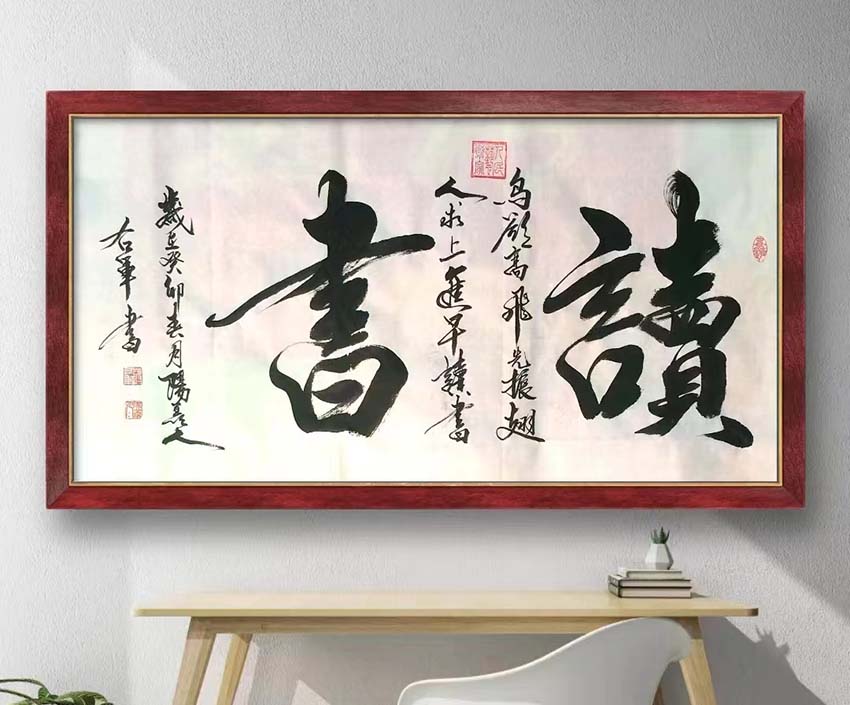 讀
鳥欲高飛先振翅
人求上進早讀書
書
歲在癸卯春月陽羨人
右軍書